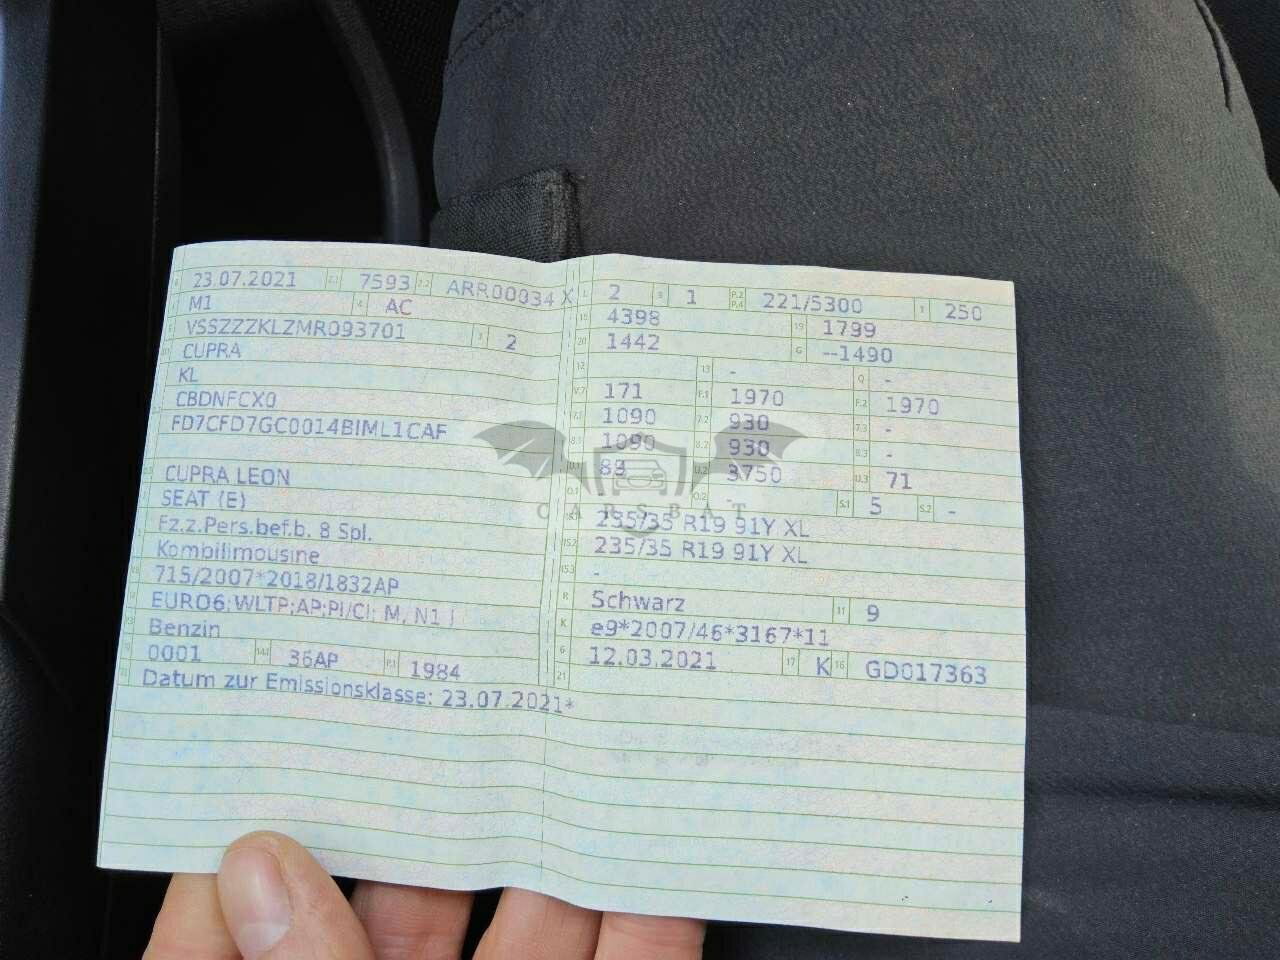 23.07.2021 2.1 7593 2.2 ARR00034 X
M1 4 AC
VSSZZZKLZMR093701 3 2
CUPRA
KL
CBDNFCX0
FD7CFD7GC0014BIML1CAF
CUPRA LEON
SEAT (E)
Fz.z.Pers.bef.b. 8 Spl.
Kombilimousine
715/2007*2018/1832AP
EURO6;WLTP;AP;PI/CI; M, N1 I
Benzin
0001 14.1 36AP P.1 1984
Datum zur Emissionsklasse: 23.07.2021*
L 2 9 1 P.2 P.4 221/5300 T 250
18 4398 19 1799
20 1442 G --1490
12 13 - Q -
V.7 171 F.1 1970 F.2 1970
7.1 1090 7.2 930 7.3 -
8.1 1090 8.2 930 8.3 -
U.1 83 U.2 3750 U.3 71
O.1 O.2 - S.1 5 S.2 -
CARSBAT
15.1 235/35 R19 91Y XL
15.2 235/35 R19 91Y XL
15.3 -
R Schwarz 11 9
K e9*2007/46*3167*11
6 12.03.2021 17 K 16 GD017363
21